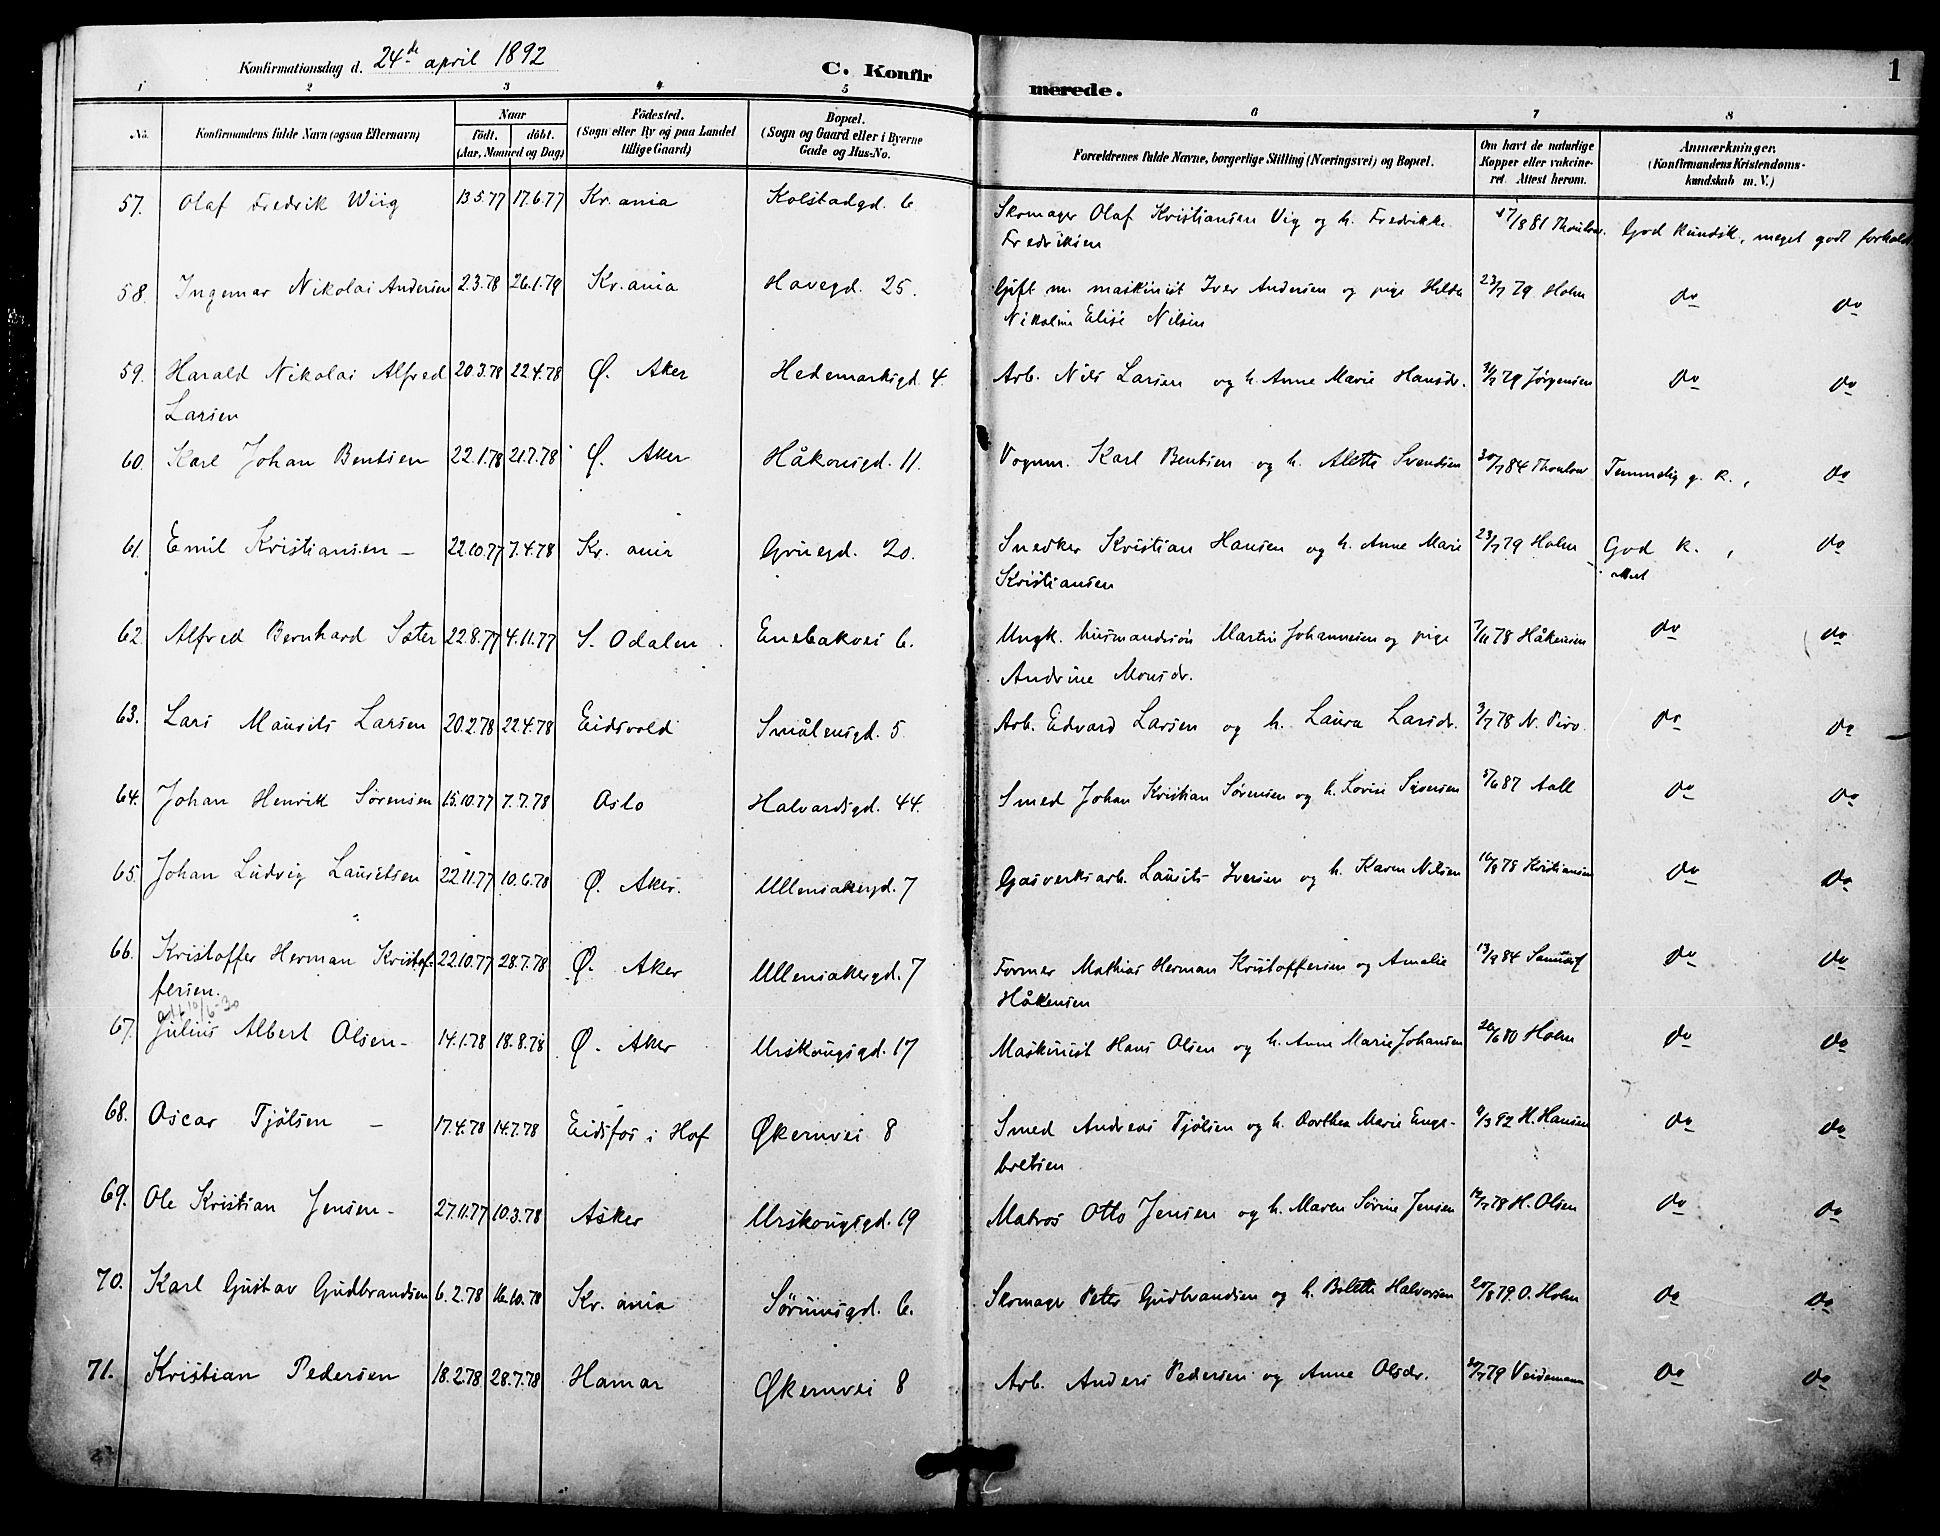 Konfirmationsdag d. 24de april 1892
C. Konfir
merede.
1
1 2 3 4 5 6 7 8
No. Konfirmandens fulde Navn (ogsaa Efternavn) Naar födt. döbt. (Aar, Maaned og Dag) Födested. (Sogn eller By og paa Landet tillige Gaard) Bopæl. (Sogn og Gaard eller i Byerne Gade og Hus-No. Forældrenes fulde Navne, borgerlige Stilling (Næringsvei) og Bopæl. Om havt de naturlige Kopper eller vakcineret. Attest herom. Anmærkninger. (Konfirmandens Kristendomskundskab m. V.)
57. Olaf Fredrik Wiig 13.5.77 17.6.77 Kr.ania Kolstadgd. 6 Skomager Olaf Kristiansen Vig og h. Fredrikke /8 81 God kundsk., meget godt forhold
Fredriksen
58. Ingemar Nikolai Andersen 2.3.78 26.1.79 Kr.ania Havegd. 25. Gift m. maskinist Iver Andersen og pige Hilda 23/7 79 Holm do do
Nikoline Elise Nilsen
59. Harald Nikolai Alfred 20.3.78 22.4.78 Ø. Aker Hedemarksgd. 4. Arb. Nils Larsen og h. Anne Marie Hansdr. 31/7 79 Jørgensen do do
Larsen
60. Karl Johan Bentsen 22.1.78 21.7.78 Ø. Aker Håkonsgd. 11. Vognm. Karl Bentsen og h. Alette Svendsen 30/7 84 Temmelig g. k., do
61. Emil Kristiansen – 22.10.77 7.4.78 Kr. ania Gruegd. 20. Snedker Kristian Hansen og h. Anne Marie 23/7 79 Holm God k., do
Kristiansen
62. Alfred Bernhard Sæter 22.8.77 4.11.77 S. Odalen Enebakvei 6. Ungk. husmandssøn Martin Johannesen og pige 7/11 78 Håkensen do do
Andrine Monsdr.
63. Lars Maurits Larsen 20.2.78 22.4.78 Eidsvold Smålensgd. 5 Arb. Edvard Larsen og h. Laura Larsdr. 3/7 78 N. do do
64. Johan Henrik Sørensen 15.10.77 7.7.78 Oslo Halvardsgd. 44. Smed Johan Kristian Sørensen og h. Lovise Syversen 5/6 87 Aall do do
65. Johan Ludvig Lauritsen 22.11.77 10.6.78 Ø. Aker. Ullensakergd. 7 Gasverksarb. Laurits Iversen og h. Karen Nilsen 16/8 78 Kristiansen do do
66. Kristoffer Herman Kristof- 22.10.77 28.7.78 Ø. Aker Ullensakergd. 7 Former Mathias Herman Kristoffersen og Amalie 13/9 84 do do
fersen. Håkensen
gift 10/6-30
67. Julius Albert Olsen – 14.1.78 18.8.78 Ø. Aker Urskougsgd. 17 Maskinist Hans Olsen og h. Anne Marie Johansen /6 80 Holm do do
68. Oscar Tjølsen – 17.4.78 14.7.78 Eidsfos i Hof Økernvei 8 Smed Andreas Tjølsen og h. Dorthea Marie Enge- 9/3 92 H. Hansen do do
bretsen
69. Ole Kristian Jensen – 27.11.77 10.3.78 Asker Urskougsgd. 19 Matros Otto Jensen og h. Maren Sørine Jensen /7 78 H. Olsen do do
70. Karl Gustav Gudbrandsen 6.2.78 16.10.78 Kr. ania Sørumsgd. 6. Skomager Petter Gudbrandsen og h. Bolette Halvorsen 20/8 79 O. Holm do do
71. Kristian Pedersen 18.2.78 28.7.78 Hamar Økernvei 8 Arb. Anders Pedersen og Anne Olsdr. /7 79 Veidemann do do